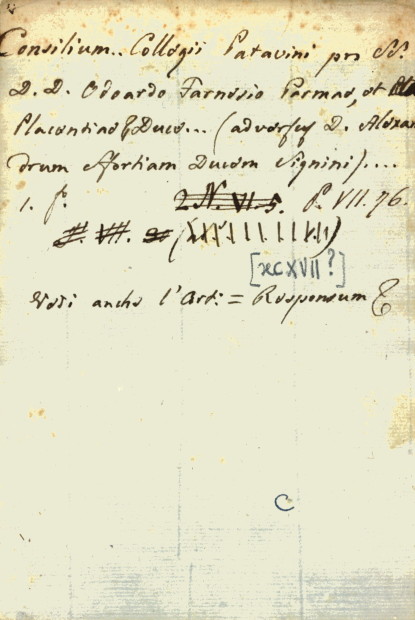 Consilium.. Collegii Patavini pro SS.
D. D. Odoardo Farnesio Parmae, et
Placentiae & Duce... (adversus D. Alexan
drum Sfortiam Ducem Signini)....
1. f. 2. N. VI. 5. P. VII. 76.
[XCXVII?]
Vedi anche l'Art: = Responsum &
C